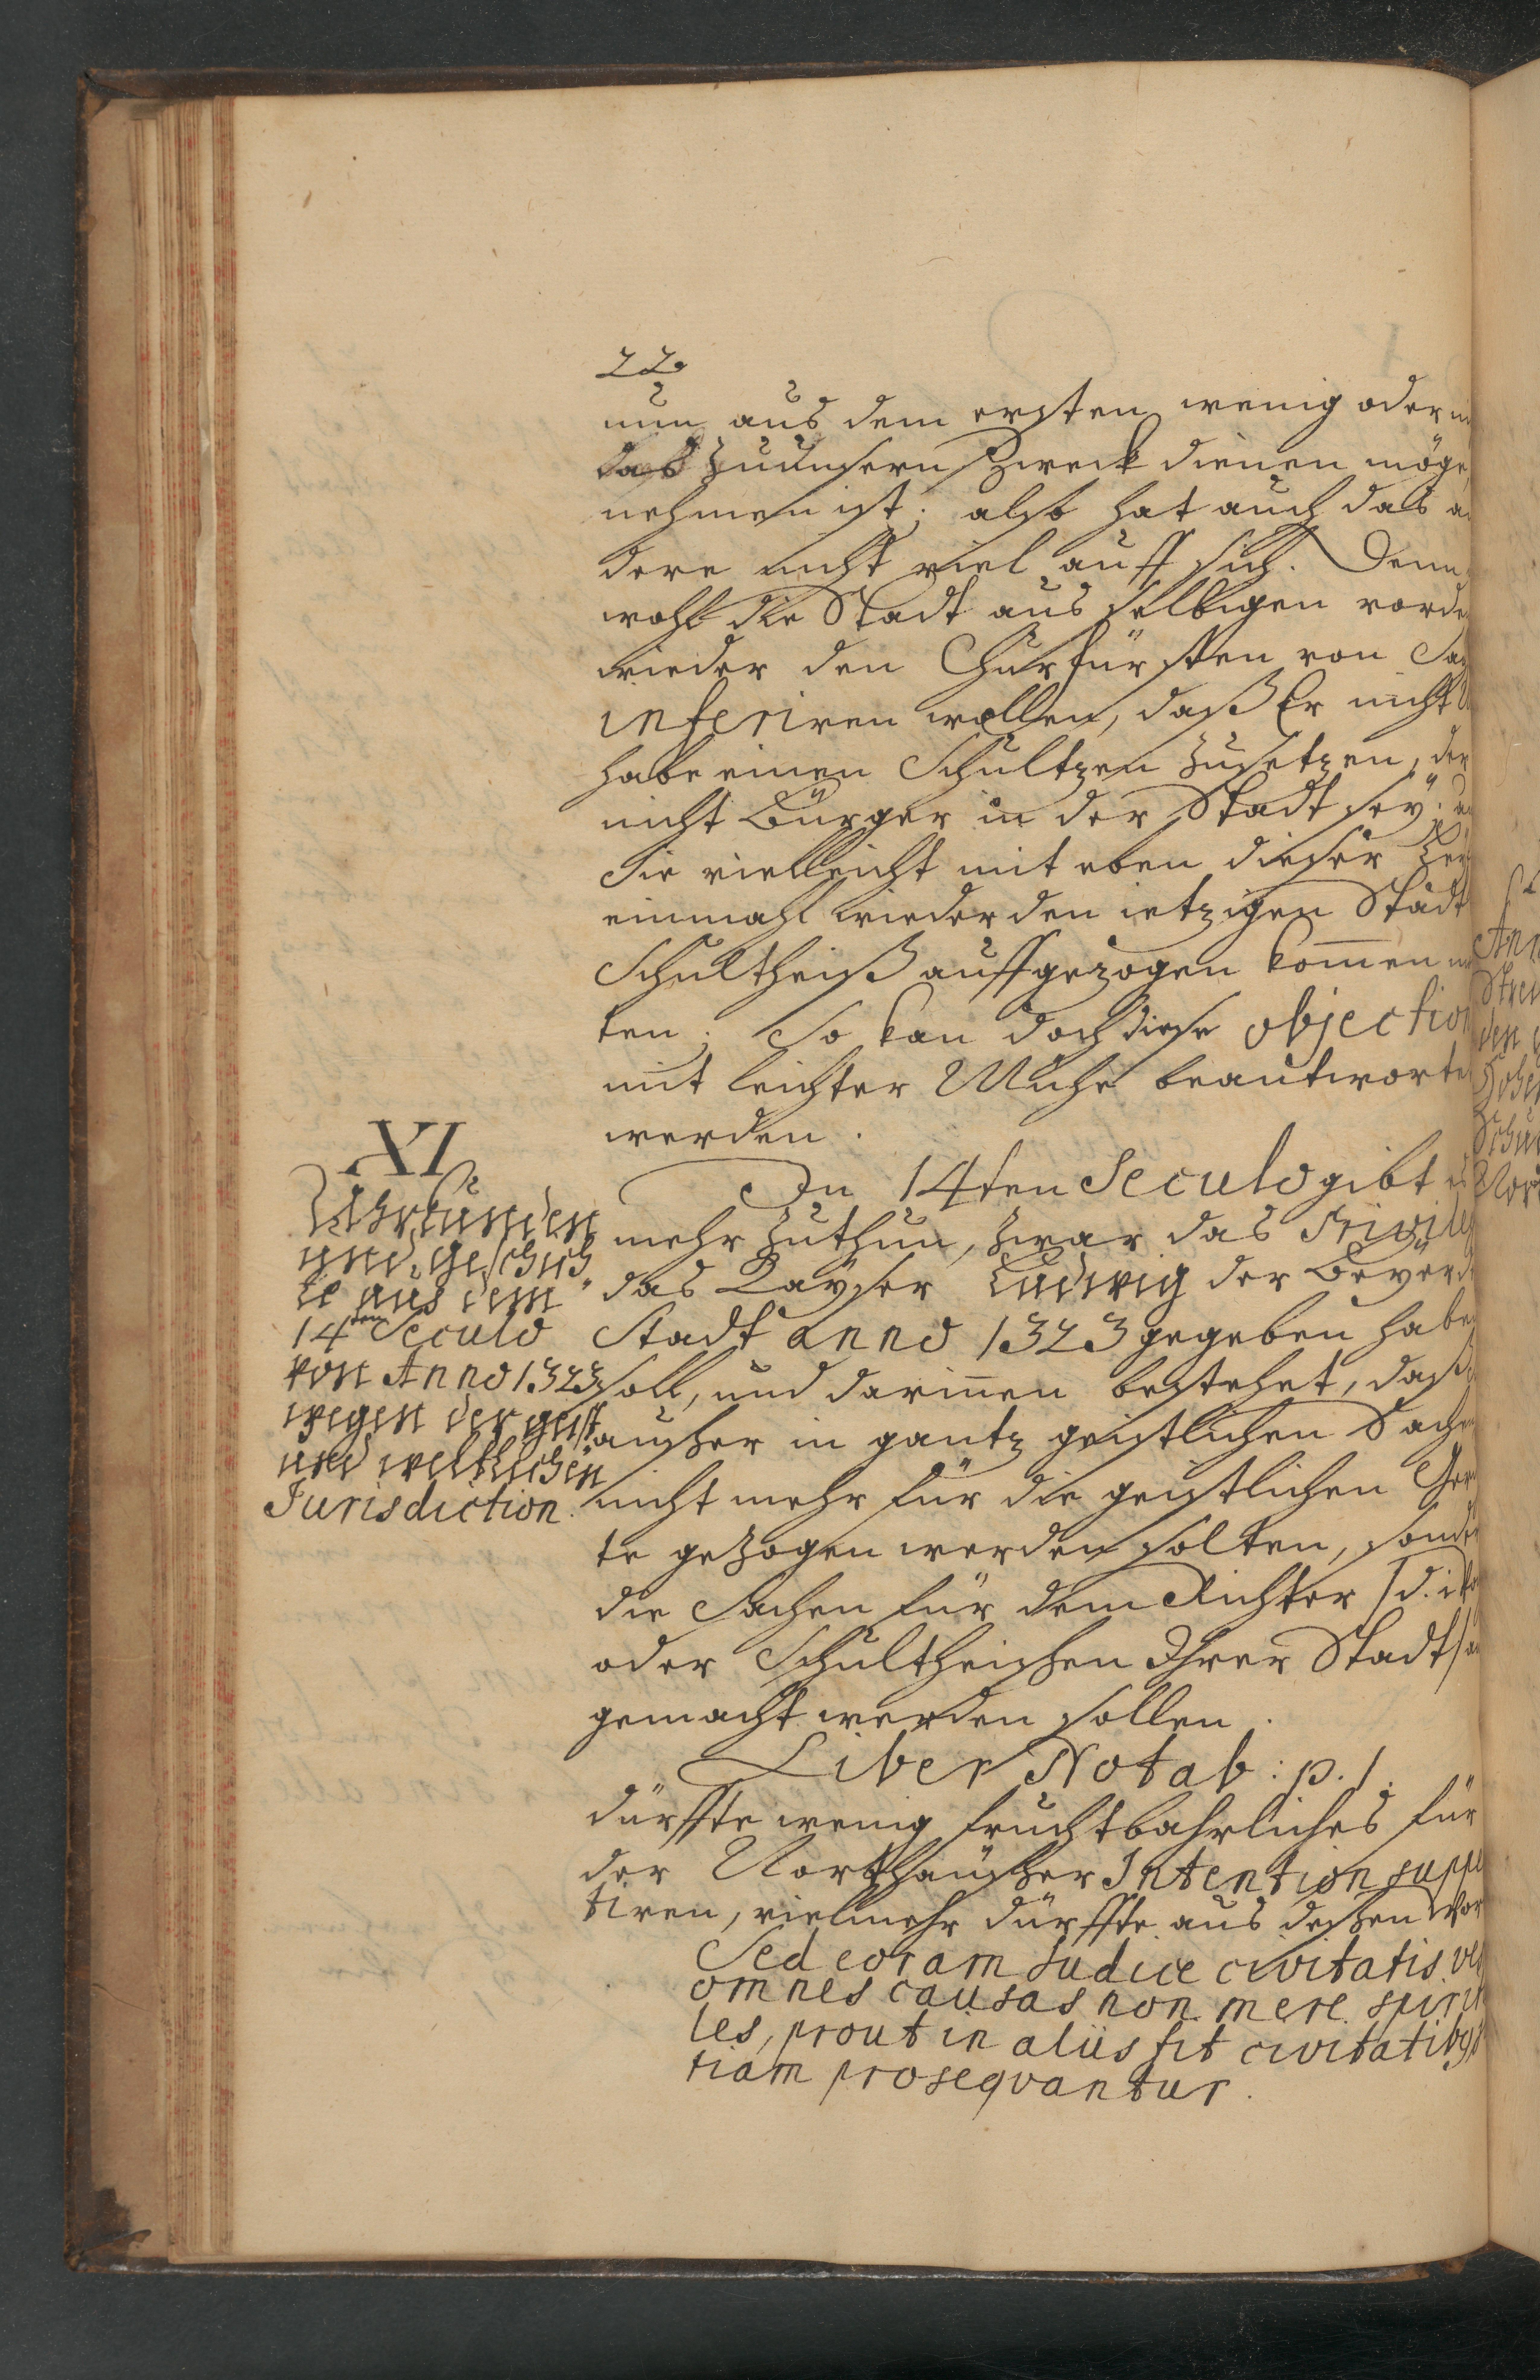 22.
nun aus dem ersten wenig oder
das zu unsern Zweck dienen möge,
nehmen ist; also hat auch das
dere nicht viel auff sich. Denn
wohl die Stadt aus selbigen
wieder den Churfürsten von
inferiren wollen, daß Er nicht
habe einen Schultzen zusetzen, der
nicht Bürger in der Stadt seÿ;
Sie vielleicht mit eben dieser
einmahl wieder den ietzigen Stadt
Schultheiß auffgezogen kom̄en
ten; So kan doch diese objection
mit leichter Muhe beantworte
werden.
XI.
Uhrkunden
und Geschich
te aus dem
14ten Seculo
von Anno 1323
wegen der geist
und weltlichen
Jurisdiction.
In 14ten Seculo gibt es
mehr zuthun, zwar das Privile
das Kaÿser Ludwig der Beÿer
Stadt anno 1323 gegeben habe
soll, und darin̄en bestehet, daß
auser in gantz geistlichen Sache
nicht mehr für die geistlichen
te gezogen werden solten, sonde
die Sachen für dem Richter /d. i.
oder Schultheisen Ihrer Stadt/
gemacht werden sollen.
Liber Notab: p. 1.
dürffte wenig fruchtbahrliches für
der Northäuser Intention suppe
tiren, vielmehr dürffte aus desen Wor
Sed coram Judice civitatis
omnes causas non mere spiri
les, prout in aliis fit civitatib9
tiam proseqvantur.